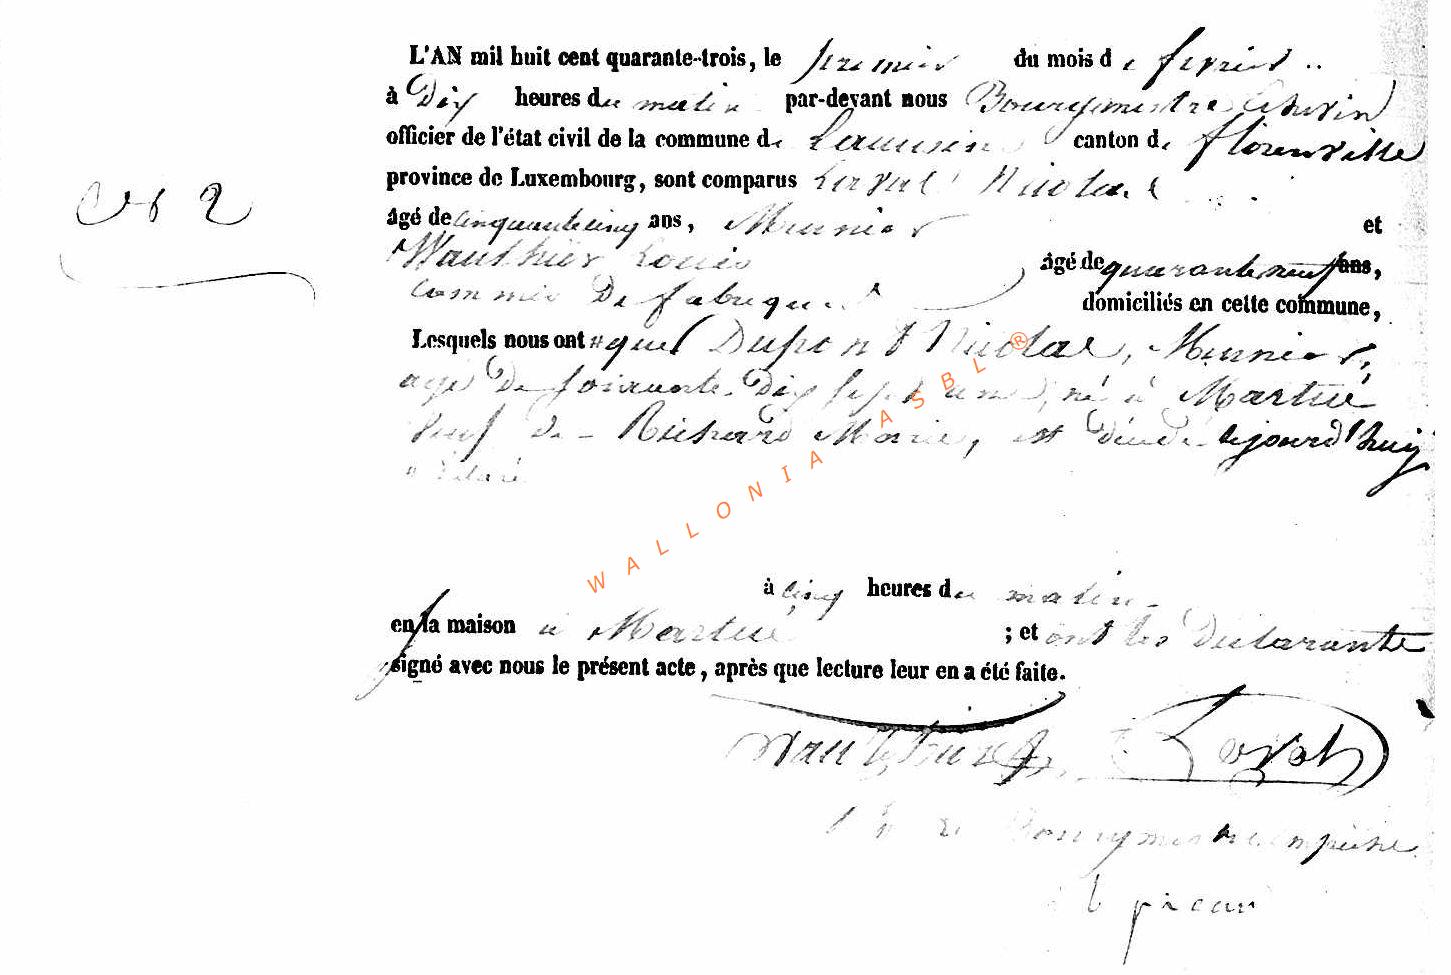 L'AN mil huit cent quarante-trois, le premier du mois de fevrier
à Dix heures du matin par-devant nous Bourgmestre Echevin
officier de l'état civil de la commune de Lacuisine canton de florenville
province de Luxembourg, sont comparus Nicolas
N° 2
âgé de cinquante cinq ans, Meunier et
Wauthier Louis âgé de quarante neuf ans,
Commis De fabrique domiciliés en cette commune,
Lesquels nous ont # que Dupont Nicolas, Meunier,
agé De soixante Dix sept ans, né à Martué
veuf de Richard Marie, est décédé cejourd'huy
# Déclaré
à cinq heures du matin
en sa maison à Martué ; et ont les Déclarants
signé avec nous le présent acte, après que lecture leur en a été faite.
Wauthier
Bourgmestre empêché
WALLONIA ASBL ®